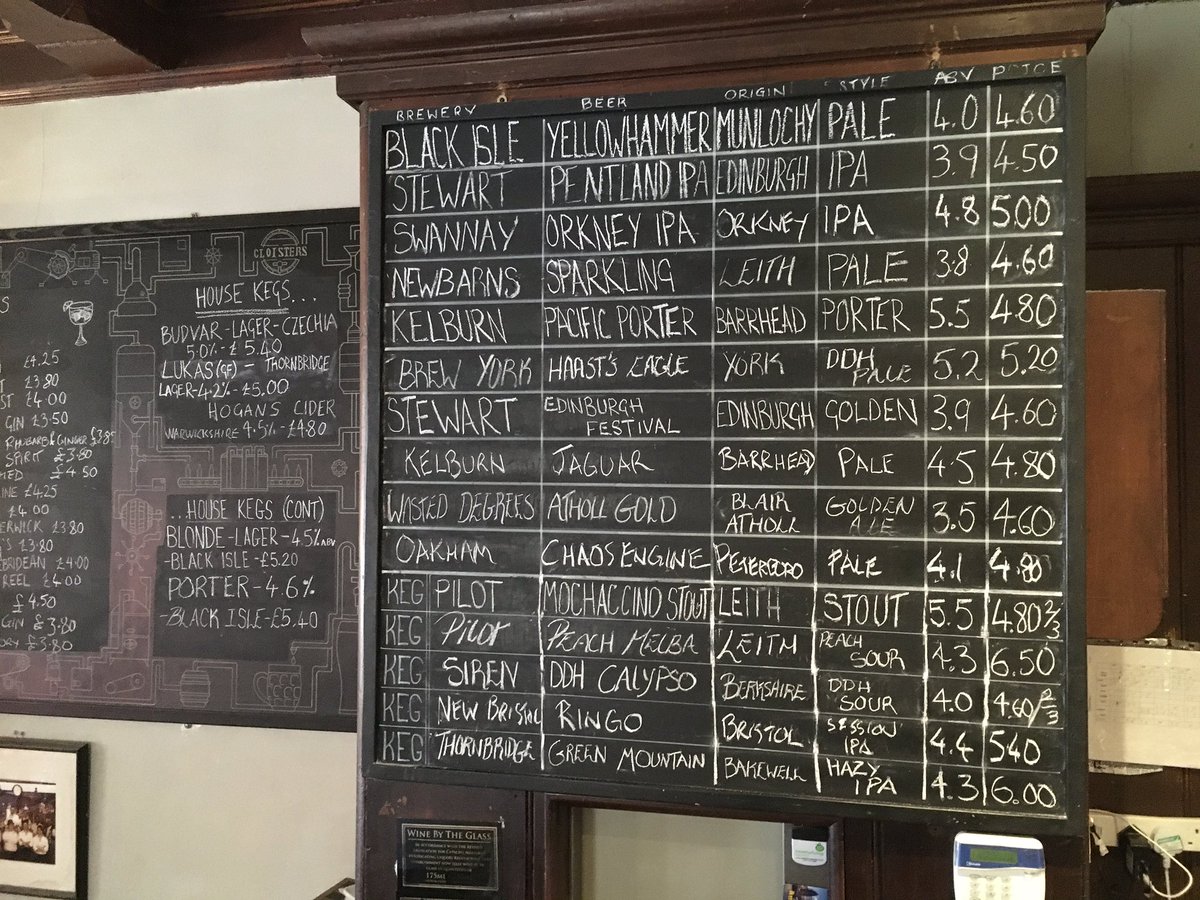 CLOISTERS
£4.25
£3.80
ST £4.00
GIN £3.50
RHUBARB & GINGER £3.85
SPIRIT £3.80
£4.50
INE £4.25
£4.00
ERWICK £3.80
'S £3.80
BRIDEAN £4.00
REEL £4.00
£4.50
GIN £3.80
£3.80
HOUSE KEGS...
BUDVAR-LAGER-CZECHIA
5.0%-£5.40
LUKAS(GF) - THORNBRIDGE
LAGER-4.2%-£5.00
HOGANS CIDER
WARWICKSHIRE 4.5%-£4.80
...HOUSE KEGS (CONT)
BLONDE-LAGER-4.5% ABV
-BLACK ISLE-£5.20
PORTER-4.6%
-BLACK ISLE-£5.40
BREWERY BEER ORIGIN STYLE ABV PRICE
BLACK ISLE YELLOWHAMMER MUNLOCHY PALE 4.0 4.60
STEWART PENTLAND IPA EDINBURGH IPA 3.9 4.50
SWANNAY ORKNEY IPA ORKNEY IPA 4.8 500
NEWBARNS SPARKLING LEITH PALE 3.8 4.60
KELBURN PACIFIC PORTER BARRHEAD PORTER 5.5 4.80
BREW YORK HAAST'S EAGLE YORK DDH PALE 5.2 5.20
STEWART EDINBURGH FESTIVAL EDINBURGH GOLDEN 3.9 4.60
KELBURN JAGUAR BARRHEAD PALE 4.5 4.80
WASTED DEGREES ATHOLL GOLD BLAIR ATHOLL GOLDEN ALE 3.5 4.60
OAKHAM CHAOS ENGINE PETERBORO PALE 4.1 4.80
KEG PILOT MOCHACCINO STOUT LEITH STOUT 5.5 4.80 2/3
KEG PILOT PEACH MELBA LEITH PEACH SOUR 4.3 6.50
KEG SIREN DDH CALYPSO BERKSHIRE DDH SOUR 4.0 4.60/2/3
KEG NEW BRISTOL RINGO BRISTOL SESSION IPA 4.4 540
KEG THORNBRIDGE GREEN MOUNTAIN BAKEWELL HAZY IPA 4.3 6.00
WINE BY THE GLASS
175ml